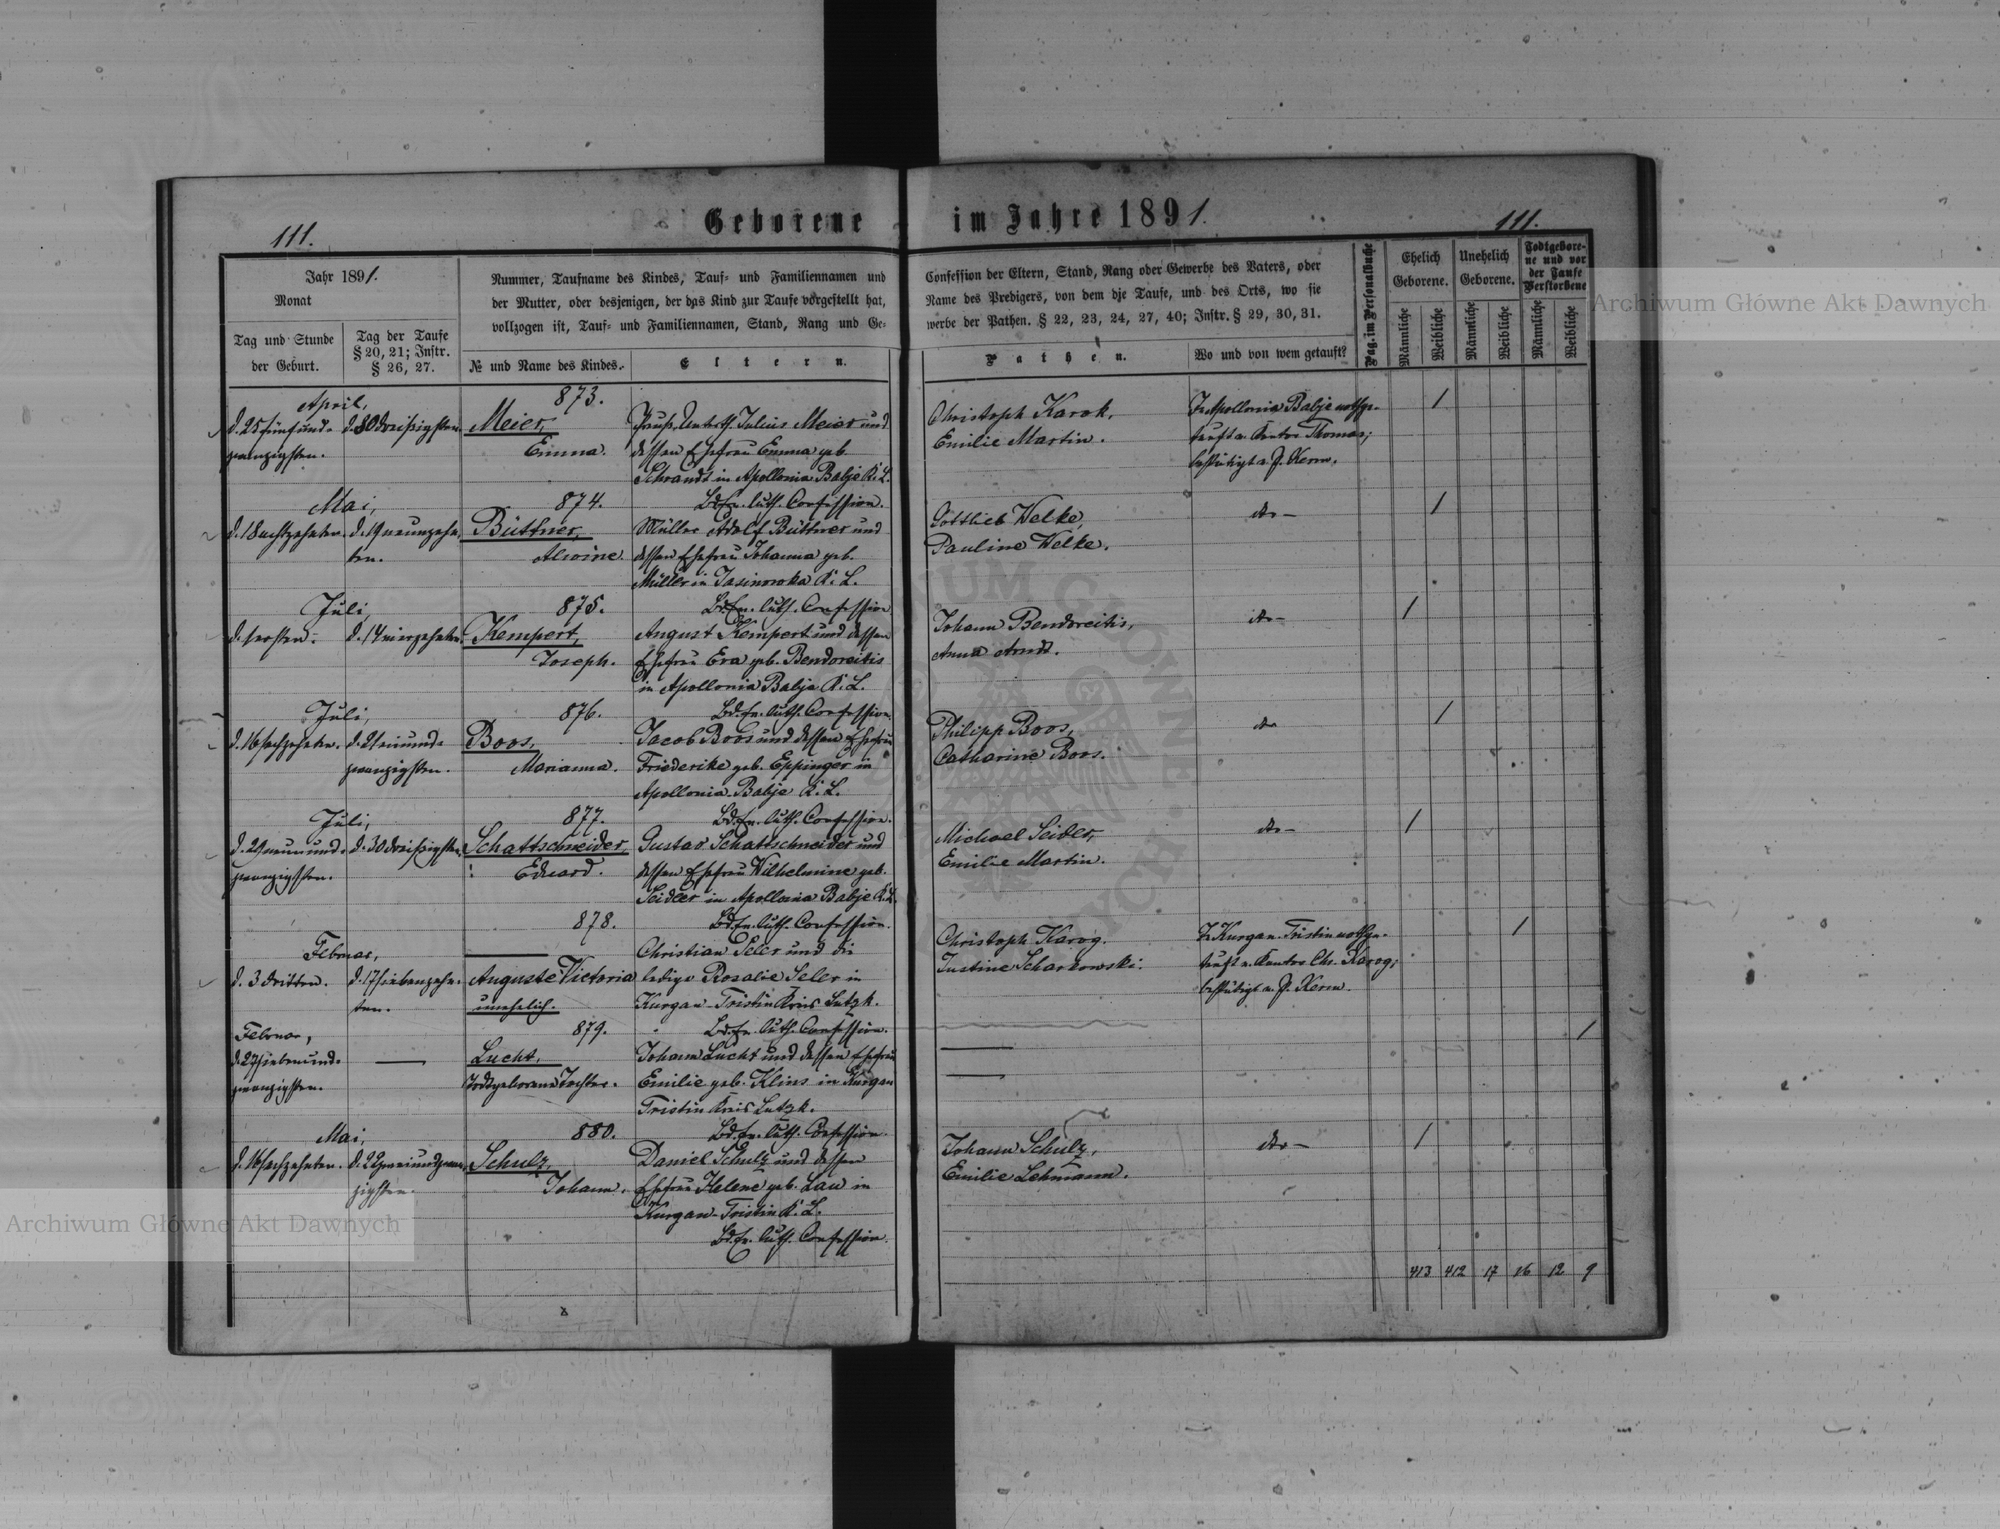 Geborene im Jahre 1891.
111.
111.
Jahr 1891.
Monat
Tag und Stunde
der Geburt.
Tag der Taufe
§ 20, 21; Instr.
§ 26, 27.
Nummer, Taufname des Kindes, Tauf- und Familiennamen und
der Mutter, oder desjenigen, der das Kind zur Taufe vorgestellt hat,
vollzogen ist, Tauf- und Familiennamen, Stand, Rang und Ge-
№ und Name des Kindes.
Eltern.
Confession der Eltern, Stand, Rang oder Gewerbe des Vaters, oder
Name des Predigers, von dem die Taufe, und des Orts, wo sie
werbe der Pathen. § 22, 23, 24, 27, 40; Instr. § 29, 30, 31.
Pathen.
Wo und von wem getauft?
Pag. im Personalbuche
Ehelich
Geborene.
Unehelich
Geborene.
Todtgebore-
ne und vor
der Taufe
Verstorbene
Männliche
Weibliche
Männliche
Weibliche
Männliche
Weibliche
April,
d. 25 fünfund-
zwanzigsten.
d. 30 dreißigsten.
873.
Meier,
Emma.
Preuß. Unterth. Julius Meier und
dessen Ehefrau Emma geb.
Schrandt in Apollonia Babje K. L.
Bd. Ev. luth. Confession.
Christoph Karok,
Emilie Martin.
In Apollonia Babje nothge-
tauft v. Kantor Thomas;
bestätigt v. P. Kerm.
1
Mai,
d. 18 achtzehnten.
d. 19 neunzehn-
ten.
874.
Büttner,
Alwine.
Müller Adolf Büttner und
dessen Ehefrau Johanna geb.
Müller in Jasinowka K. L.
Bd. Ev. luth. Confession
Gottlieb Welke,
Pauline Welke.
do —
1
Juli
d. 1 ersten.
d. 14 vierzehnten.
875.
Kempert,
Joseph.
August Kempert und dessen
Ehefrau Eva geb. Bendoreitis
in Apollonia Babje K. L.
Bd. Ev. luth. Confession.
Johann Bendoreitis,
Anna Arndt.
do —
1
Juli,
d. 16 sechzehnten.
d. 21 einund-
zwanzigsten.
876.
Boos,
Marianna.
Jacob Boos und dessen Ehefrau
Friederike geb. Eppinger in
Apollonia Babje K. L.
Bd. Ev. luth. Confession.
Philipp Boos,
Catharine Boos.
do
1
Juli,
d. 29 neunund-
zwanzigsten.
d. 30 dreißigsten.
877.
Schattschneider,
Eduard.
Gustav Schattschneider und
dessen Ehefrau Wilhelmine geb.
Seidler in Apollonia Babje K. L.
Bd. Ev. luth. Confession.
Michael Seidler,
Emilie Martin.
do —
1
Februar,
d. 3 dritten.
d. 17 siebenzehn-
ten.
878.
Auguste Victoria
unehelich.
Christian Seler und die
ledige Rosalie Seler in
Kurgan-Tristin Kreis Lutzk.
Bd. Ev. luth. Confession.
Christoph Karog.
Justine Scharkowski.
In Kurgan-Tristin nothge-
tauft v. Kantor Chr. Karog;
bestätigt v. P. Kerm.
1
Februar,
d. 27 siebenund-
zwanzigsten.
—
879.
Lucht,
Todtgeborene Tochter.
Johann Lucht und dessen Ehefrau
Emilie geb. Klins in Kurgan
Tristin Kreis Lutzk.
Bd. Ev. luth. Confession.
1
Mai,
d. 16 sechzehnten.
d. 22 zweiundzwan-
zigsten.
880.
Schulz,
Johann.
Daniel Schulz und dessen
Ehefrau Helene geb. Lau in
Kurgan-Tristin K. L.
Bd. Ev. luth. Confession.
Johann Schulz,
Emilie Lehmann.
do —
1
413 412 17 16 12 9
Archiwum Główne Akt Dawnych
Archiwum Główne Akt Dawnych